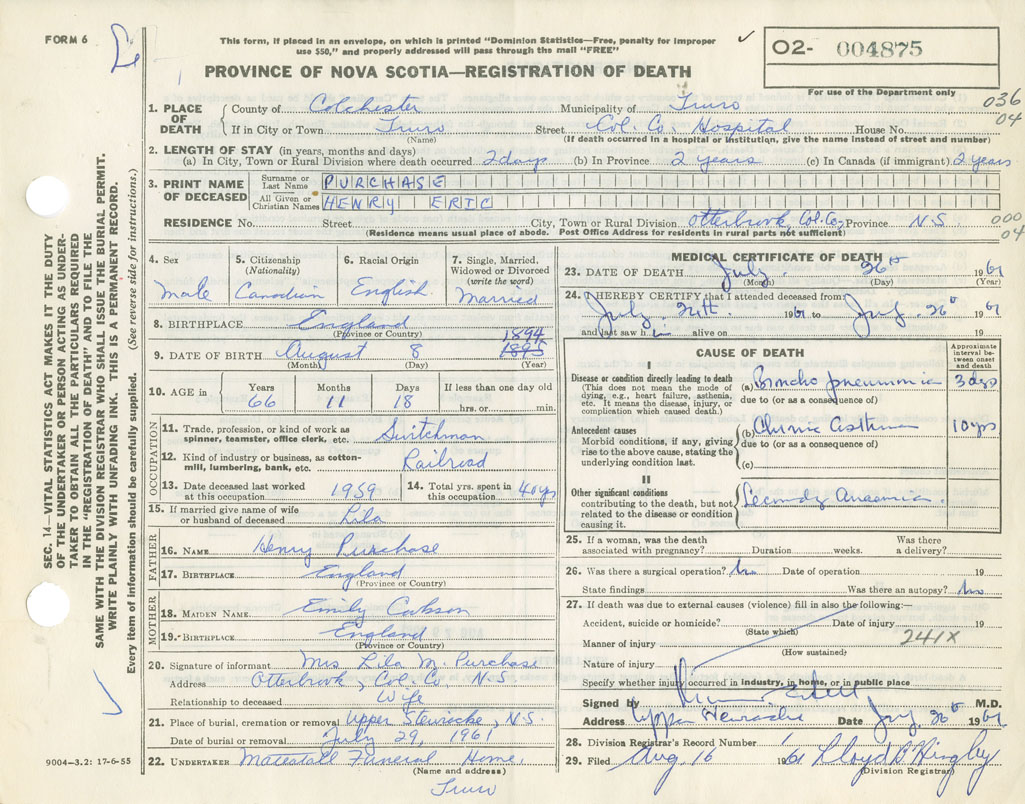 FORM 6
This form, if placed in an envelope, on which is printed "Dominion Statistics—Free, penalty for improper
use $50," and properly addressed will pass through the mail "FREE"
PROVINCE OF NOVA SCOTIA—REGISTRATION OF DEATH
02- 004875
For use of the Department only
036
04
1. PLACE OF DEATH County of Colchester Municipality of Truro
If in City or Town Truro Street Col. Co. Hospital House No.
(Name) (If death occurred in a hospital or institution, give the name instead of street and number)
2. LENGTH OF STAY (in years, months and days)
(a) In City, Town or Rural Division where death occurred 2 days (b) In Province 2 years (c) In Canada (if immigrant) 2 years
3. PRINT NAME OF DECEASED Surname or Last Name PURCHASE
All Given or Christian Names HENRY ERIC
RESIDENCE No. Street City, Town or Rural Division Otterbrook, Col. Co, Province N.S.
(Residence means usual place of abode. Post Office Address for residents in rural parts not sufficient)
000
04
4. Sex Male
5. Citizenship (Nationality) Canadian
6. Racial Origin English
7. Single, Married, Widowed or Divorced (write the word) Married
8. BIRTHPLACE England
(Province or Country)
9. DATE OF BIRTH August 8 1894 1895
(Month) (Day) (Year)
10. AGE in Years 66 Months 11 Days 18 If less than one day old hrs. or min.
OCCUPATION
11. Trade, profession, or kind of work as spinner, teamster, office clerk, etc. Switchman
12. Kind of industry or business, as cotton-mill, lumbering, bank, etc. Railroad
13. Date deceased last worked at this occupation 1959 14. Total yrs. spent in this occupation 40 yrs
15. If married give name of wife or husband of deceased Lila
FATHER
16. NAME Henry Purchase
17. BIRTHPLACE England
(Province or Country)
MOTHER
18. MAIDEN NAME Emily
19. BIRTHPLACE England
(Province or Country)
20. Signature of informant Mrs Lila M. Purchase
Address Otterbrook, Col. Co. N.S
Relationship to deceased Wife
21. Place of burial, cremation or removal Upper Stewiacke, N.S.
Date of burial or removal July 29, 1961
22. UNDERTAKER Mattatall Funeral Home,
(Name and address)
Truro
9004-3.2: 17-6-55
MEDICAL CERTIFICATE OF DEATH
23. DATE OF DEATH July 26th 1961
(Month) (Day) (Year)
24. I HEREBY CERTIFY that I attended deceased from:
July 24th 1961 to July 26th 1961
and last saw h alive on 19
CAUSE OF DEATH
Approximate interval between onset and death
I
Disease or condition directly leading to death
(This does not mean the mode of dying, e.g., heart failure, asthenia, etc. It means the disease, injury, or complication which caused death.)
(a) Broncho pneumonia 3 dys
due to (or as a consequence of)
Antecedent causes
Morbid conditions, if any, giving rise to the above cause, stating the underlying condition last.
(b) Chronic Asthma 10 yrs
due to (or as a consequence of)
(c)
II
Other significant conditions
contributing to the death, but not related to the disease or condition causing it.
Secondy Anaemia.
25. If a woman, was the death associated with pregnancy? Duration weeks. Was there a delivery?
26. Was there a surgical operation? No Date of operation 19
State findings Was there an autopsy? No
27. If death was due to external causes (violence) fill in also the following:—
Accident, suicide or homicide? Date of injury 19
(State which)
241X
Manner of injury
(How sustained)
Nature of injury
Specify whether injury occurred in industry, in home, or in public place
Signed by M.D.
Address Upper Stewiacke Date July 26th 1961
28. Division Registrar's Record Number 1
29. Filed Aug 16 1961 Lloyd
(Division Registrar)
SEC. 14—VITAL STATISTICS ACT MAKES IT THE DUTY
OF THE UNDERTAKER OR PERSON ACTING AS UNDER-
TAKER TO OBTAIN ALL THE PARTICULARS REQUIRED
IN THE "REGISTRATION OF DEATH" AND TO FILE THE
SAME WITH THE DIVISION REGISTRAR WHO SHALL ISSUE THE BURIAL PERMIT.
WRITE PLAINLY WITH UNFADING INK. THIS IS A PERMANENT RECORD.
Every item of information should be carefully supplied. (See reverse side for instructions.)